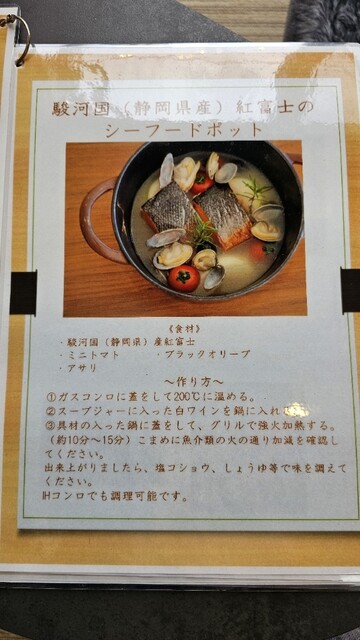 駿河国（静岡県産）紅富士の
シーフードポット
《食材》
・駿河国（静岡県）産紅富士
・ミニトマト　・ブラックオリーブ
・アサリ
～作り方～
①ガスコンロに蓋をして200℃に温める。
②スープジャーに入った白ワインを鍋に入れ
③具材の入った鍋に蓋をして、グリルで強火加熱する。
（約10分～15分）こまめに魚介類の火の通り加減を確認し
てください。
出来上がりましたら、塩コショウ、しょうゆ等で味を調えて
ください。
IHコンロでも調理可能です。